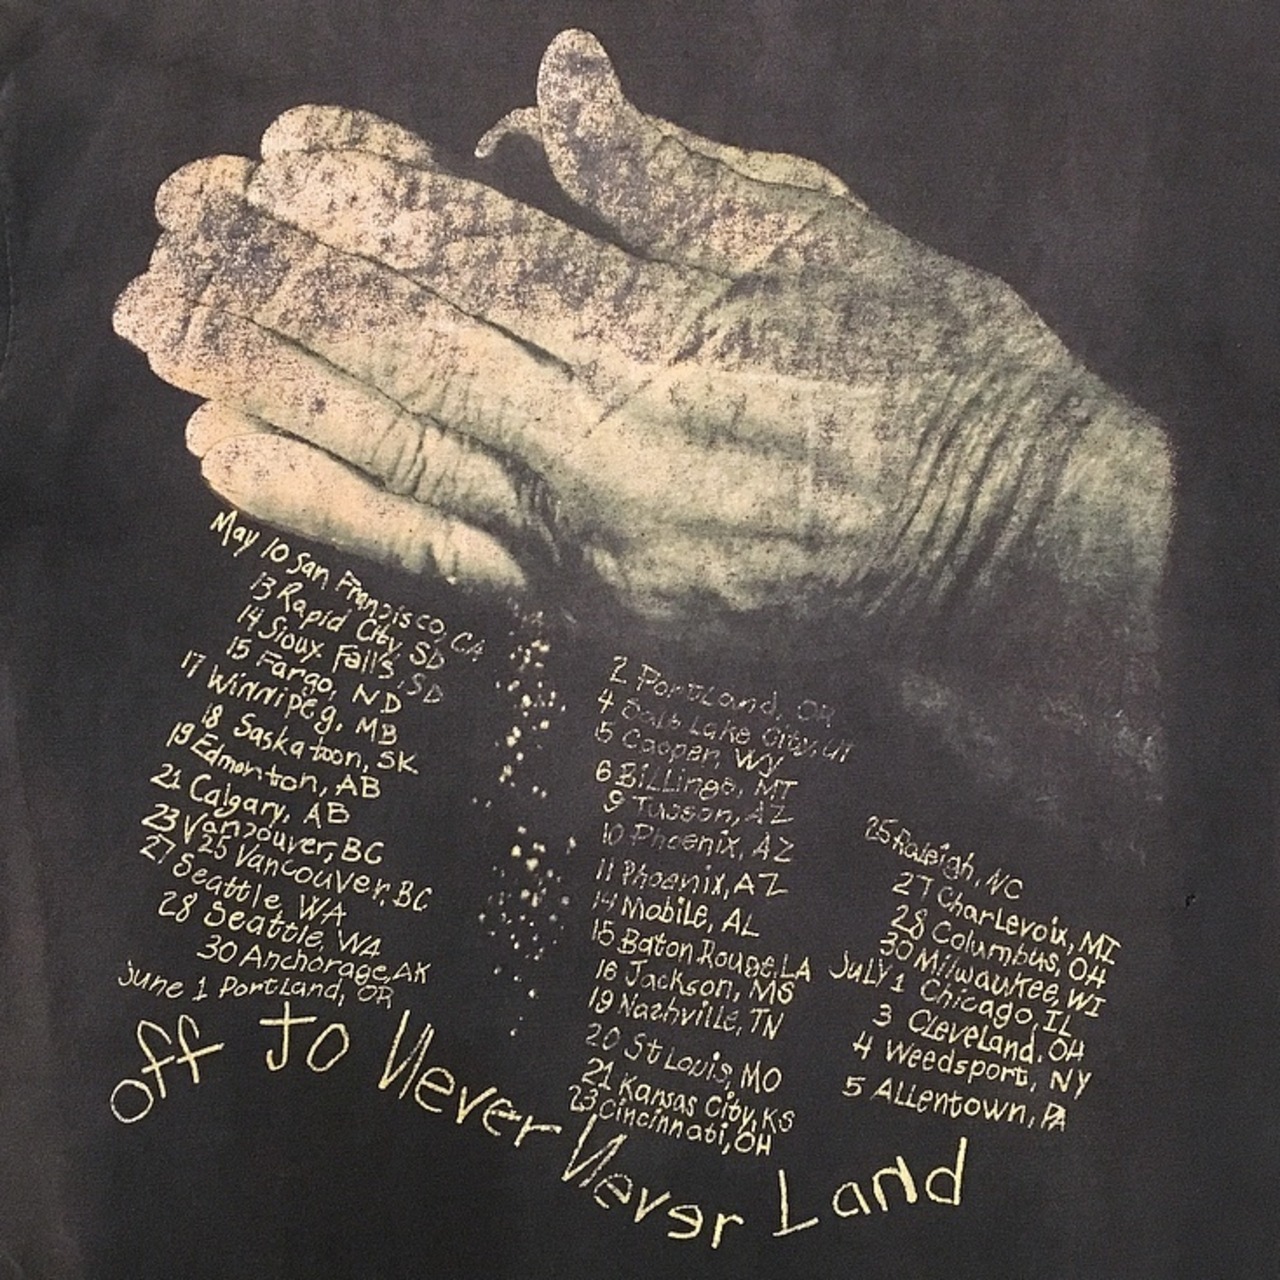 May 10 San Francisco, CA
13 Rapid City, SD
14 Sioux Falls, SD
15 Fargo, ND
17 Winnipeg, MB
18 Saskatoon, SK
19 Edmonton, AB
21 Calgary, AB
23 Vancouver, BC
25 Vancouver, BC
27 Seattle, WA
28 Seattle, WA
30 Anchorage, AK
June 1 Portland, OR
2 Portland, OR
4 Salt Lake City, UT
5 Casper, Wy
6 Billings, MT
9 Tucson, AZ
10 Phoenix, AZ
11 Phoenix, AZ
14 Mobile, AL
15 Baton Rouge, LA
16 Jackson, MS
19 Nashville, TN
20 St Louis, MO
21 Kansas City, KS
23 Cincinnati, OH
25 Raleigh, NC
27 Charlevoix, MI
28 Columbus, OH
30 Milwaukee, WI
July 1 Chicago, IL
3 Cleveland, OH
4 Weedsport, NY
5 Allentown, PA
off To Never Never Land